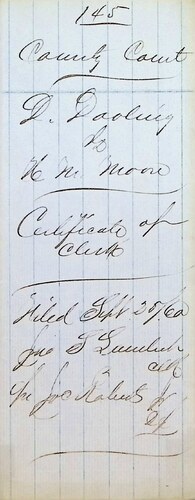 145
County Court
D. Dooling
vs
H M. Moore
Certificate of
Clerk
Filed Sept 25/60
Jno T
Clk
By Jno Roberts Jr